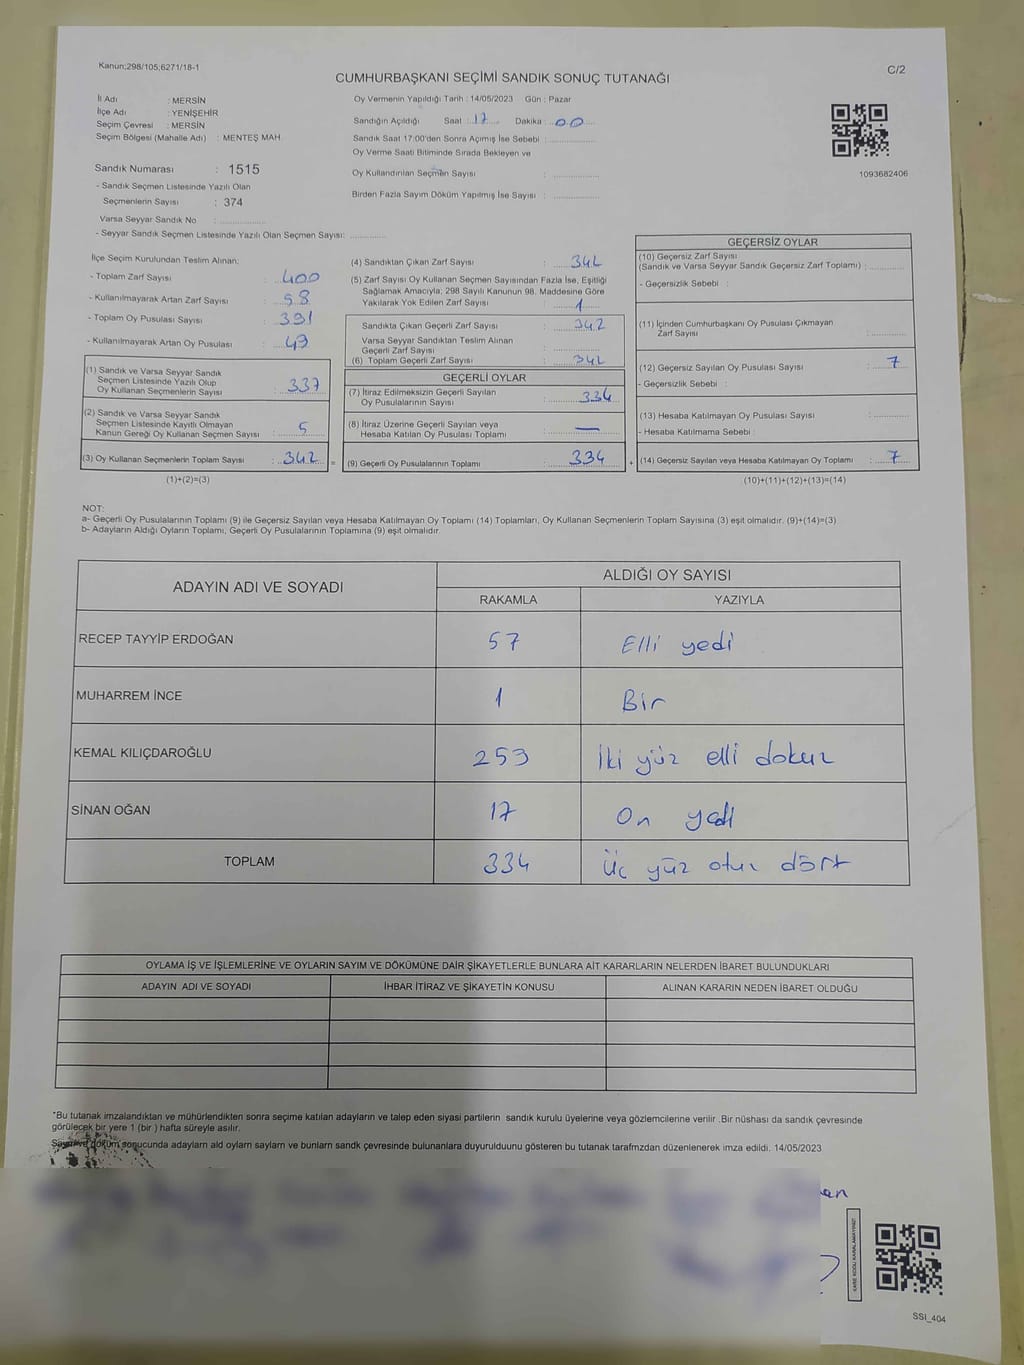 Kanun;298/105;6271/18-1
C/2
CUMHURBAŞKANI SEÇİMİ SANDIK SONUÇ TUTANAĞI
İl Adı : MERSİN
İlçe Adı : YENİŞEHİR
Seçim Çevresi : MERSİN
Seçim Bölgesi (Mahalle Adı) : MENTEŞ MAH.
Sandık Numarası : 1515
- Sandık Seçmen Listesinde Yazılı Olan
Seçmenlerin Sayısı : 374
Varsa Seyyar Sandık No : ................
- Seyyar Sandık Seçmen Listesinde Yazılı Olan Seçmen Sayısı: ............
Oy Vermenin Yapıldığı Tarih : 14/05/2023 Gün : Pazar
Sandığın Açıldığı Saat : 17 Dakika : 00
Sandık Saat 17:00'den Sonra Açımış İse Sebebi : ................
Oy Verme Saati Bitiminde Sırada Bekleyen ve
Oy Kullandırılan Seçmen Sayısı : ................
Birden Fazla Sayım Döküm Yapılmış İse Sayısı : ................
1093682406
İlçe Seçim Kurulundan Teslim Alınan;
- Toplam Zarf Sayısı : 400
- Kullanılmayarak Artan Zarf Sayısı : 58
- Toplam Oy Pusulası Sayısı : 391
- Kullanılmayarak Artan Oy Pusulası : 49
(1) Sandık ve Varsa Seyyar Sandık
Seçmen Listesinde Yazılı Olup
Oy Kullanan Seçmenlerin Sayısı : 337
(2) Sandık ve Varsa Seyyar Sandık
Seçmen Listesinde Kayıtlı Olmayan
Kanun Gereği Oy Kullanan Seçmen Sayısı : 5
(3) Oy Kullanan Seçmenlerin Toplam Sayısı : 342
(1)+(2)=(3)
(4) Sandıktan Çıkan Zarf Sayısı : 342
(5) Zarf Sayısı Oy Kullanan Seçmen Sayısından Fazla İse, Eşitliği
Sağlamak Amacıyla; 298 Sayılı Kanunun 98. Maddesine Göre
Yakılarak Yok Edilen Zarf Sayısı : 1
Sandıkta Çıkan Geçerli Zarf Sayısı : 342
Varsa Seyyar Sandıktan Teslim Alınan
Geçerli Zarf Sayısı : ................
(6) Toplam Geçerli Zarf Sayısı : 342
GEÇERLİ OYLAR
(7) İtiraz Edilmeksizin Geçerli Sayılan
Oy Pusulalarının Sayısı : 334
(8) İtiraz Üzerine Geçerli Sayılan veya
Hesaba Katılan Oy Pusulası Toplamı : —
= (9) Geçerli Oy Pusulalarının Toplamı : 334
GEÇERSİZ OYLAR
(10) Geçersiz Zarf Sayısı
(Sandık ve Varsa Seyyar Sandık Geçersiz Zarf Toplamı) : ............
- Geçersizlik Sebebi :
(11) İçinden Cumhurbaşkanı Oy Pusulası Çıkmayan
Zarf Sayısı : ............
(12) Geçersiz Sayılan Oy Pusulası Sayısı : 7
- Geçersizlik Sebebi :
(13) Hesaba Katılmayan Oy Pusulası Sayısı : ............
- Hesaba Katılmama Sebebi :
+ (14) Geçersiz Sayılan veya Hesaba Katılmayan Oy Toplamı : 7
(10)+(11)+(12)+(13)=(14)
NOT:
a- Geçerli Oy Pusulalarının Toplamı (9) ile Geçersiz Sayılan veya Hesaba Katılmayan Oy Toplamı (14) Toplamları, Oy Kullanan Seçmenlerin Toplam Sayısına (3) eşit olmalıdır. (9)+(14)=(3)
b- Adayların Aldığı Oyların Toplamı, Geçerli Oy Pusulalarının Toplamına (9) eşit olmalıdır.
ADAYIN ADI VE SOYADI ALDIĞI OY SAYISI
RAKAMLA YAZIYLA
RECEP TAYYİP ERDOĞAN 57 Elli yedi
MUHARREM İNCE 1 Bir
KEMAL KILIÇDAROĞLU 259 İki yüz elli dokuz
SİNAN OĞAN 17 On yedi
TOPLAM 334 Üç yüz otuz dört
OYLAMA İŞ VE İŞLEMLERİNE VE OYLARIN SAYIM VE DÖKÜMÜNE DAİR ŞİKAYETLERLE BUNLARA AİT KARARLARIN NELERDEN İBARET BULUNDUKLARI
ADAYIN ADI VE SOYADI İHBAR İTİRAZ VE ŞİKAYETİN KONUSU ALINAN KARARIN NEDEN İBARET OLDUĞU
*Bu tutanak imzalandıktan ve mühürlendikten sonra seçime katılan adayların ve talep eden siyasi partilerin sandık kurulu üyelerine veya gözlemcilerine verilir .Bir nüshası da sandık çevresinde
görülecek bir yere 1 (bir ) hafta süreyle asılır.
Sayım ve döküm sonucunda adayların ald oylarn saylarn ve bunlarn sandk çevresinde bulunanlara duyurulduunu gösteren bu tutanak tarafmzdan düzenlenerek imza edildi. 14/05/2023
KARE KODU KARALAMAYINIZ!
SSI_404